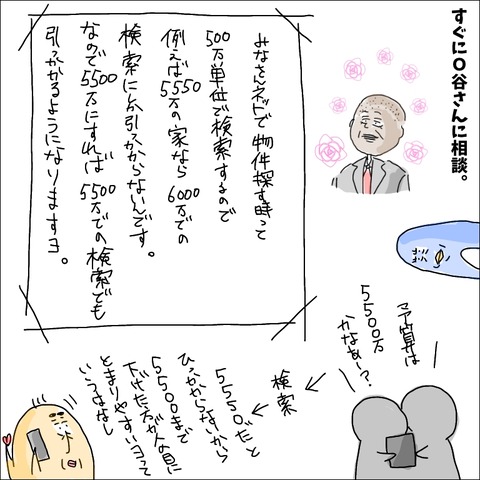 すぐにO谷さんに相談。
みなさんネットで物件探す時って
500万単位で検索するので
例えば5550万の家なら6000万での
検索にしか引っかからないんです。
なので5500万にすれば5500万での検索でも
引っかかるようになりますヨ。
予算は
5500万
かなぁー?
検索
5550だと
ひっかからないから
5500まで
下げた方が人の目に
とまりやすいヨって
いうはなし